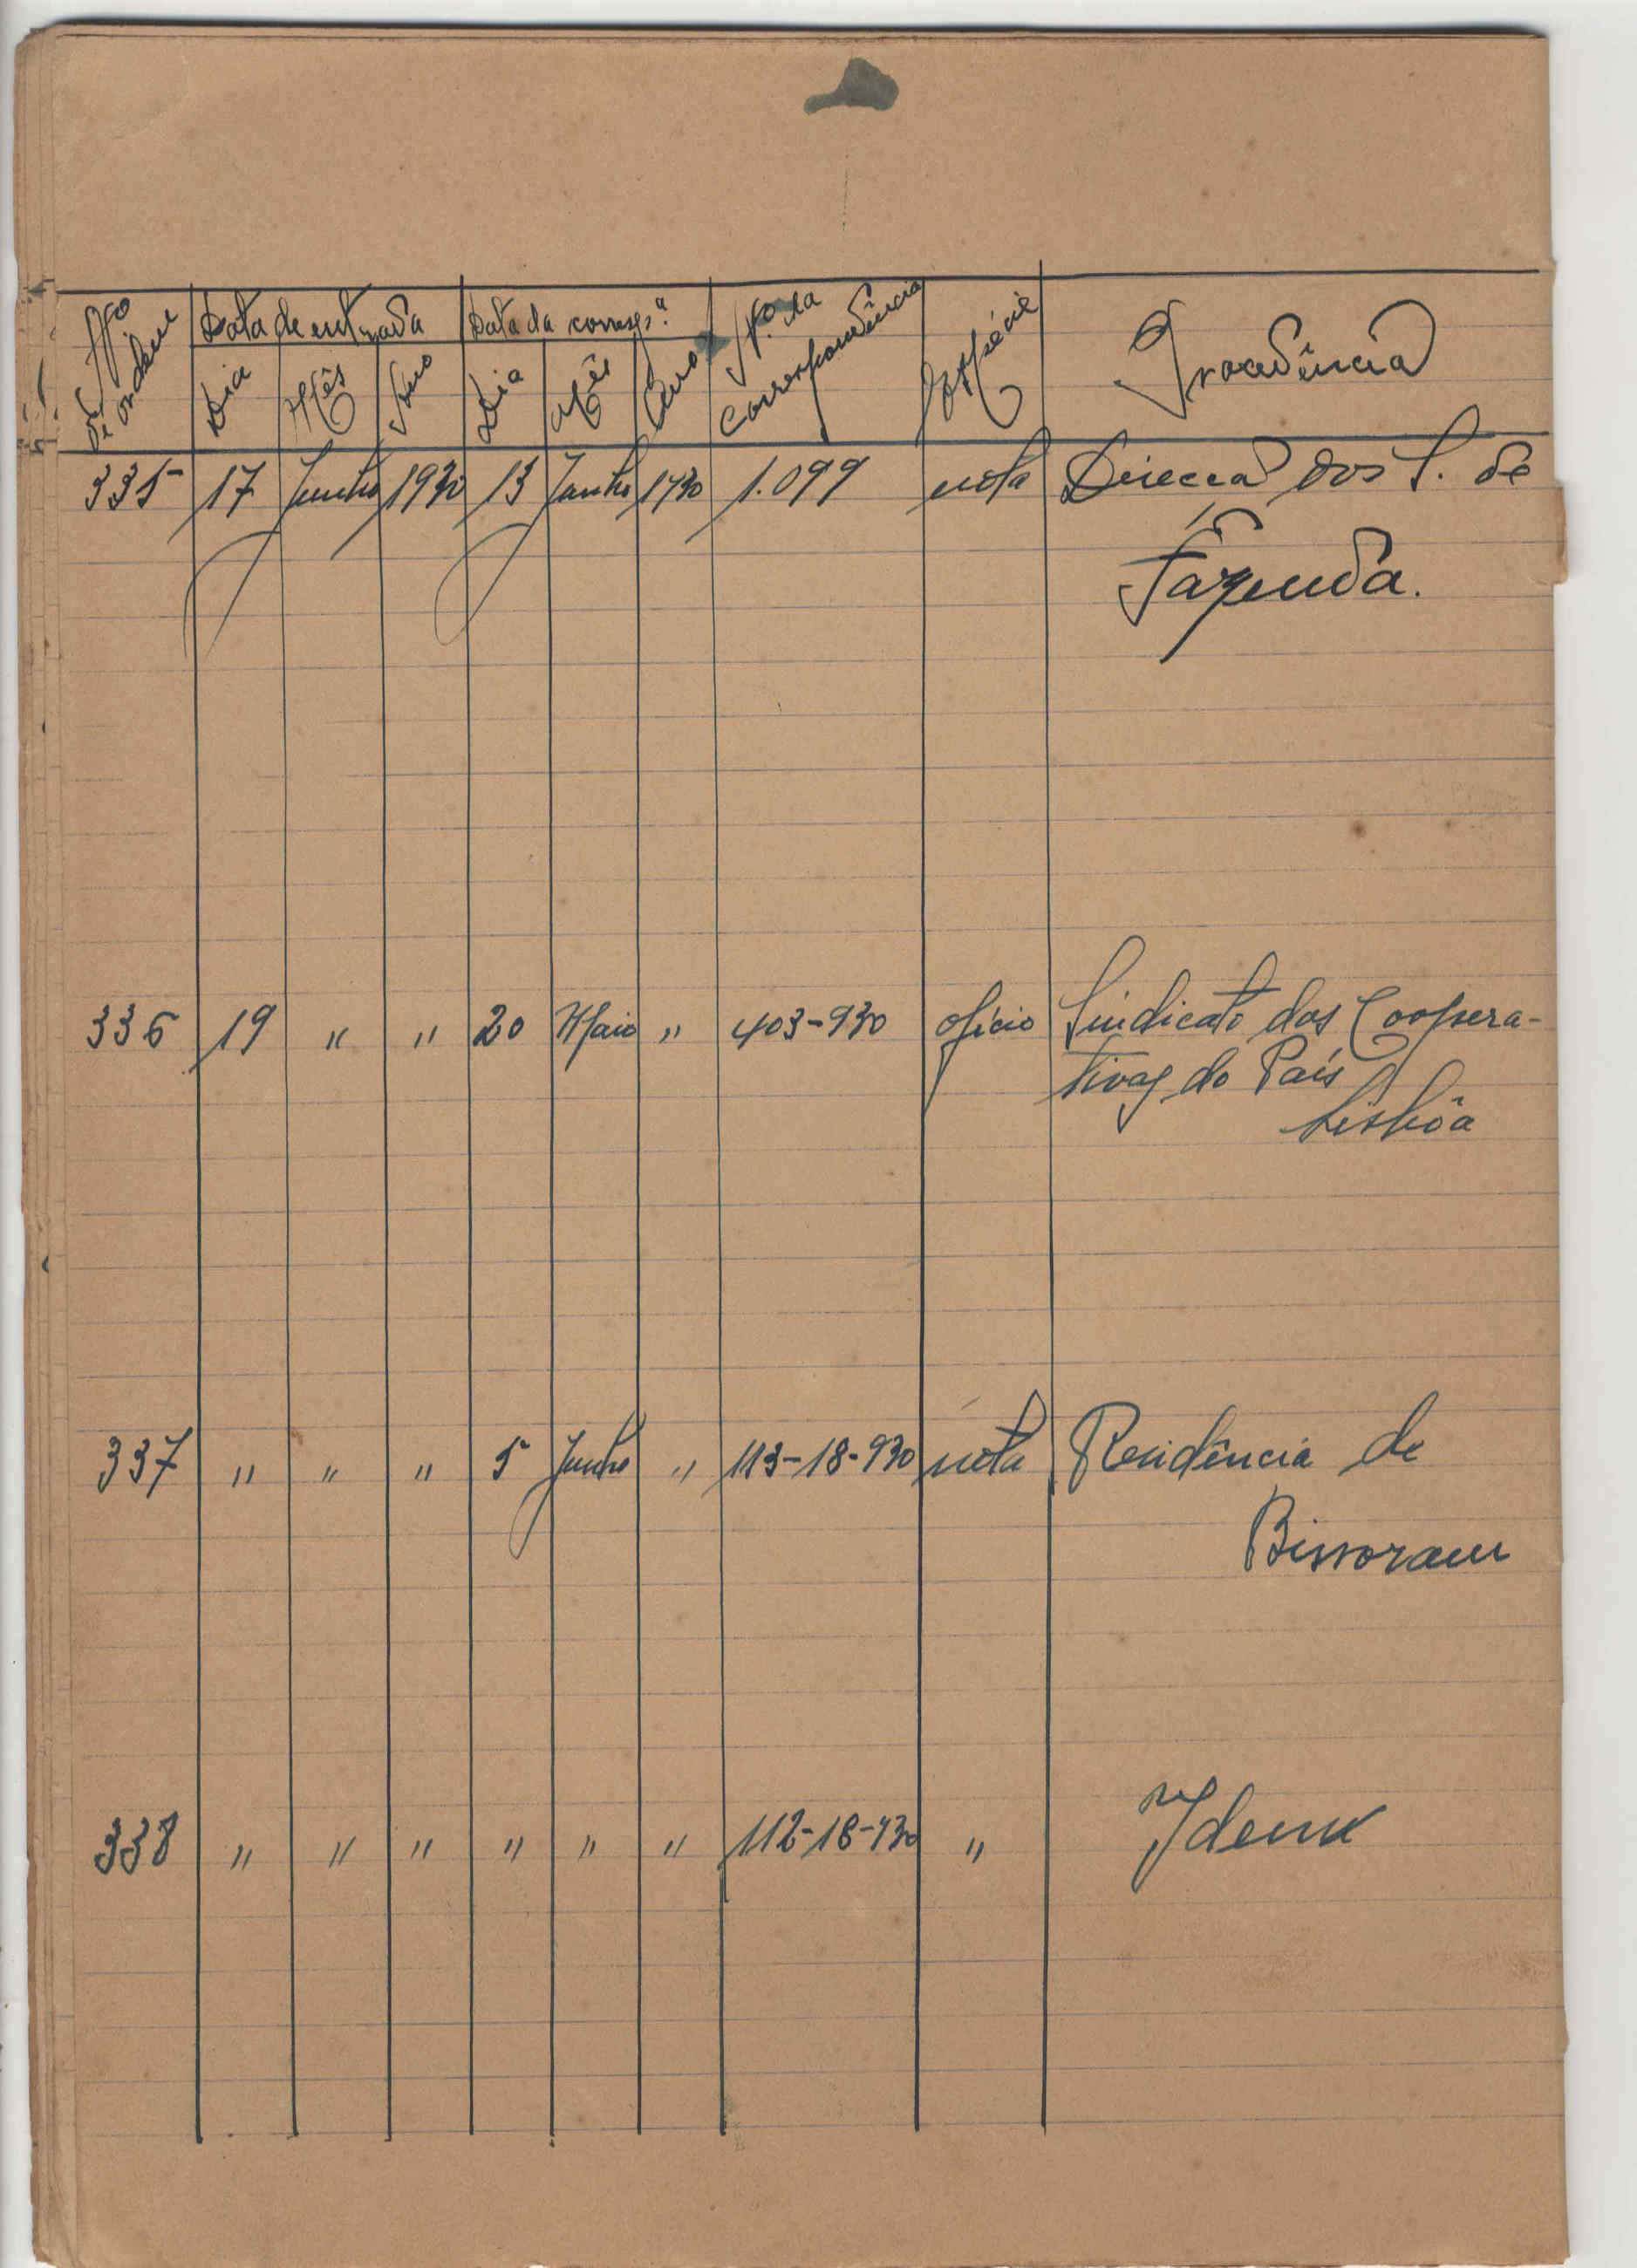 Nº de ordem | Data de entrada | Data da corresp.ª | Nº da correspondência | Espécie | Procedência
Dia | Mês | Ano | Dia | Mês | Ano
335 | 17 | Junho | 1930 | 13 | Junho | 1930 | 1.099 | nota | Direcção dos S. de
Fazenda.
336 | 19 | " | " | 20 | Maio | " | 403-930 | ofício | Sindicato das Coopera-
tivas do País
Lisbôa
337 | " | " | " | 5 | Junho | " | 113-18-930 | nota | Residência de
Bissoram
338 | " | " | " | " | " | " | 112-18-930 | " | Idem